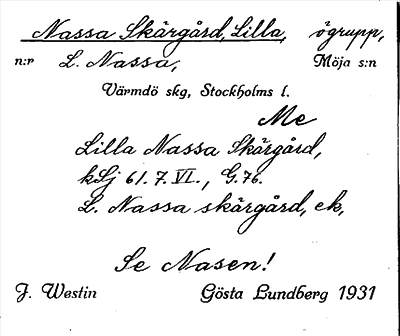 Nassa Skärgård, Lilla, ögrupp,
n:r L. Nassa, Möja s:n
Värmdö skg, Stockholms l.
Me
Lilla Nassa Skärgård,
kSj 61. 7. VI., G. 76.
L. Nassa skärgård, ek,
Se Nasen!
J. Westin Gösta Lundberg 1931